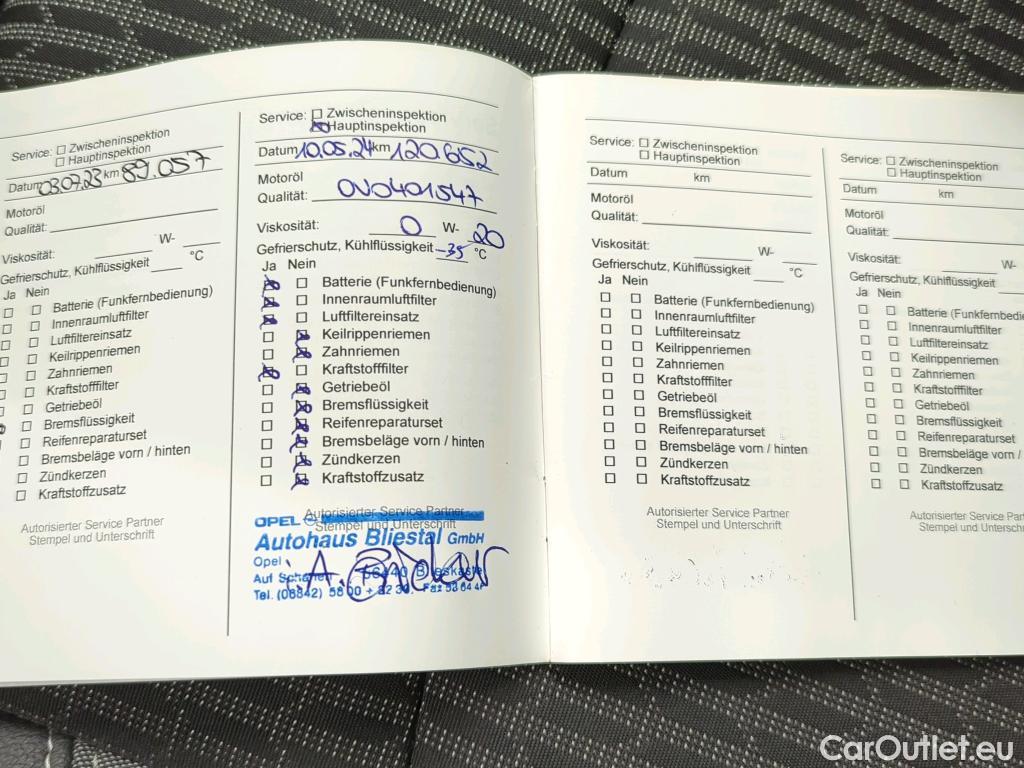 Service: Zwischeninspektion
Hauptinspektion
Datum 03.07.23 km 89.057
Motoröl
Qualität:
Viskosität: W-
Gefrierschutz, Kühlflüssigkeit °C
Ja Nein
Batterie (Funkfernbedienung)
Innenraumluftfilter
Luftfiltereinsatz
Keilrippenriemen
Zahnriemen
Kraftstofffilter
Getriebeöl
Bremsflüssigkeit
Reifenreparaturset
Bremsbeläge vorn / hinten
Zündkerzen
Kraftstoffzusatz
Autorisierter Service Partner
Stempel und Unterschrift
Service: Zwischeninspektion
Hauptinspektion
Datum 10.05.24 km 120.652
Motoröl
Qualität: OV0401547
Viskosität: 0 W- 20
Gefrierschutz, Kühlflüssigkeit -35 °C
Ja Nein
Batterie (Funkfernbedienung)
Innenraumluftfilter
Luftfiltereinsatz
Keilrippenriemen
Zahnriemen
Kraftstofffilter
Getriebeöl
Bremsflüssigkeit
Reifenreparaturset
Bremsbeläge vorn / hinten
Zündkerzen
Kraftstoffzusatz
Autorisierter Service Partner
Stempel und Unterschrift
OPEL
Autohaus Bliestal GmbH
Opel
Auf
Tel. (06842)
Service: Zwischeninspektion
Hauptinspektion
Datum km
Motoröl
Qualität:
Viskosität: W-
Gefrierschutz, Kühlflüssigkeit °C
Ja Nein
Batterie (Funkfernbedienung)
Innenraumluftfilter
Luftfiltereinsatz
Keilrippenriemen
Zahnriemen
Kraftstofffilter
Getriebeöl
Bremsflüssigkeit
Reifenreparaturset
Bremsbeläge vorn / hinten
Zündkerzen
Kraftstoffzusatz
Autorisierter Service Partner
Stempel und Unterschrift
Service: Zwischeninspektion
Hauptinspektion
Datum km
Motoröl
Qualität:
Viskosität: W-
Gefrierschutz, Kühlflüssigkeit
Ja Nein
Batterie (Funkfernbedie
Innenraumluftfilter
Luftfiltereinsatz
Keilrippenriemen
Zahnriemen
Kraftstofffilter
Getriebeöl
Bremsflüssigkeit
Reifenreparaturset
Bremsbeläge vorn /
Zündkerzen
Kraftstoffzusatz
Autorisierter Service P
Stempel und Untersch
CarOutlet.eu